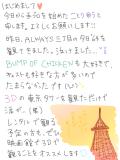 はじめまして♥
今日から手伝を始めた こと♪と
申します。よろしくお願いします!!
昨日、ALWAYS三丁目の夕日'64を
観てきました。泣けました…
BUMP OF CHICKENも大好きで、
キャストも好きな方が多いので
たまらなかったです(^^)
3Dの東京タワーを観ただけで
涙が…(笑)
レンタルで観ようと
予定の方も、ぜひ
映画館で3Dで
観ることをオススメします!